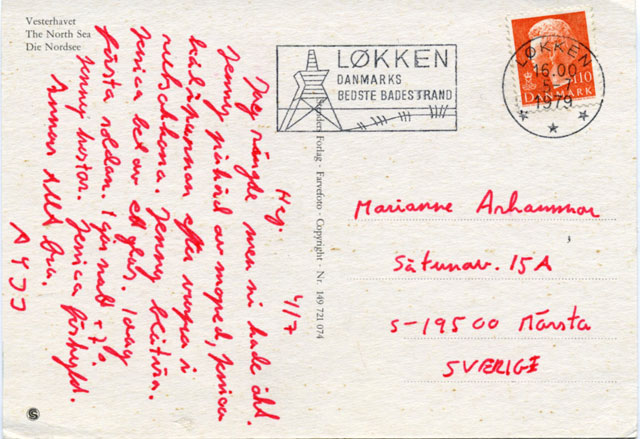 Vesterhavet
The North Sea
Die Nordsee
Hej. 4/7
Jag ringde men ni hade åkt.
Jenny påkörd av moped, Jenica
pannan efter i
Jenny
Jenica bet av ett glas. Idag
första soldan. Igår natt + 7°.
Jenny hostar. Jenica förkyld.
Annars allt bra.
A Y J J
Forlag · Farvefoto · Copyright · Nr. 149 721 074
LØKKEN
DANMARKS
BEDSTE BADESTRAND
LØKKEN
16.00
5.-7.
1979
110
DANMARK
Marianne Arhammar
Såtunav. 15A
S-19500 Märsta
SVERIGE